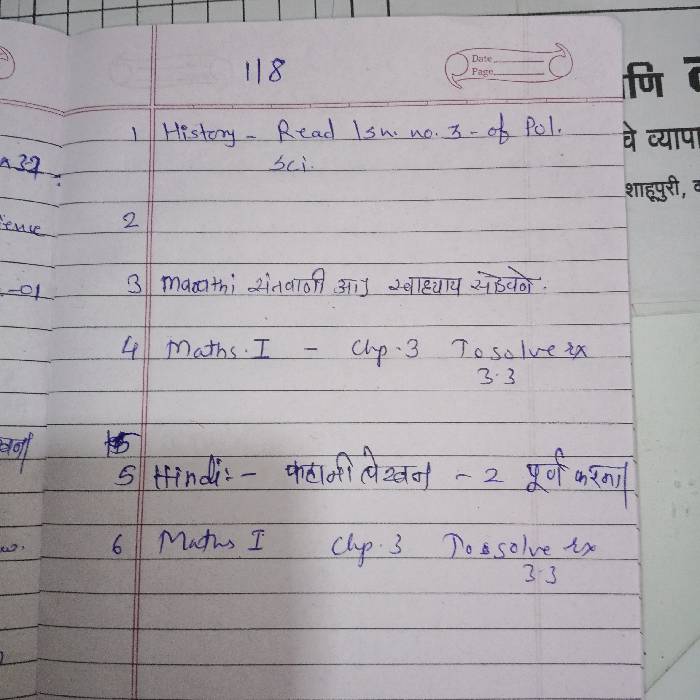 118
Date
Page
1 History - Read lsn. no. 3 - of Pol.
Sci.
2
3 Marathi संतवाणी स्वाध्याय सोडवणे.
4 Maths. I - Chp. 3 To solve ex
3.3
5
5 Hindi:- कहानी लेखन - 2 पूर्ण करना
6 Maths I Chp. 3 To solve ex
3.3
ience
-01
णि
चे व्यापा
शाहूपुरी,